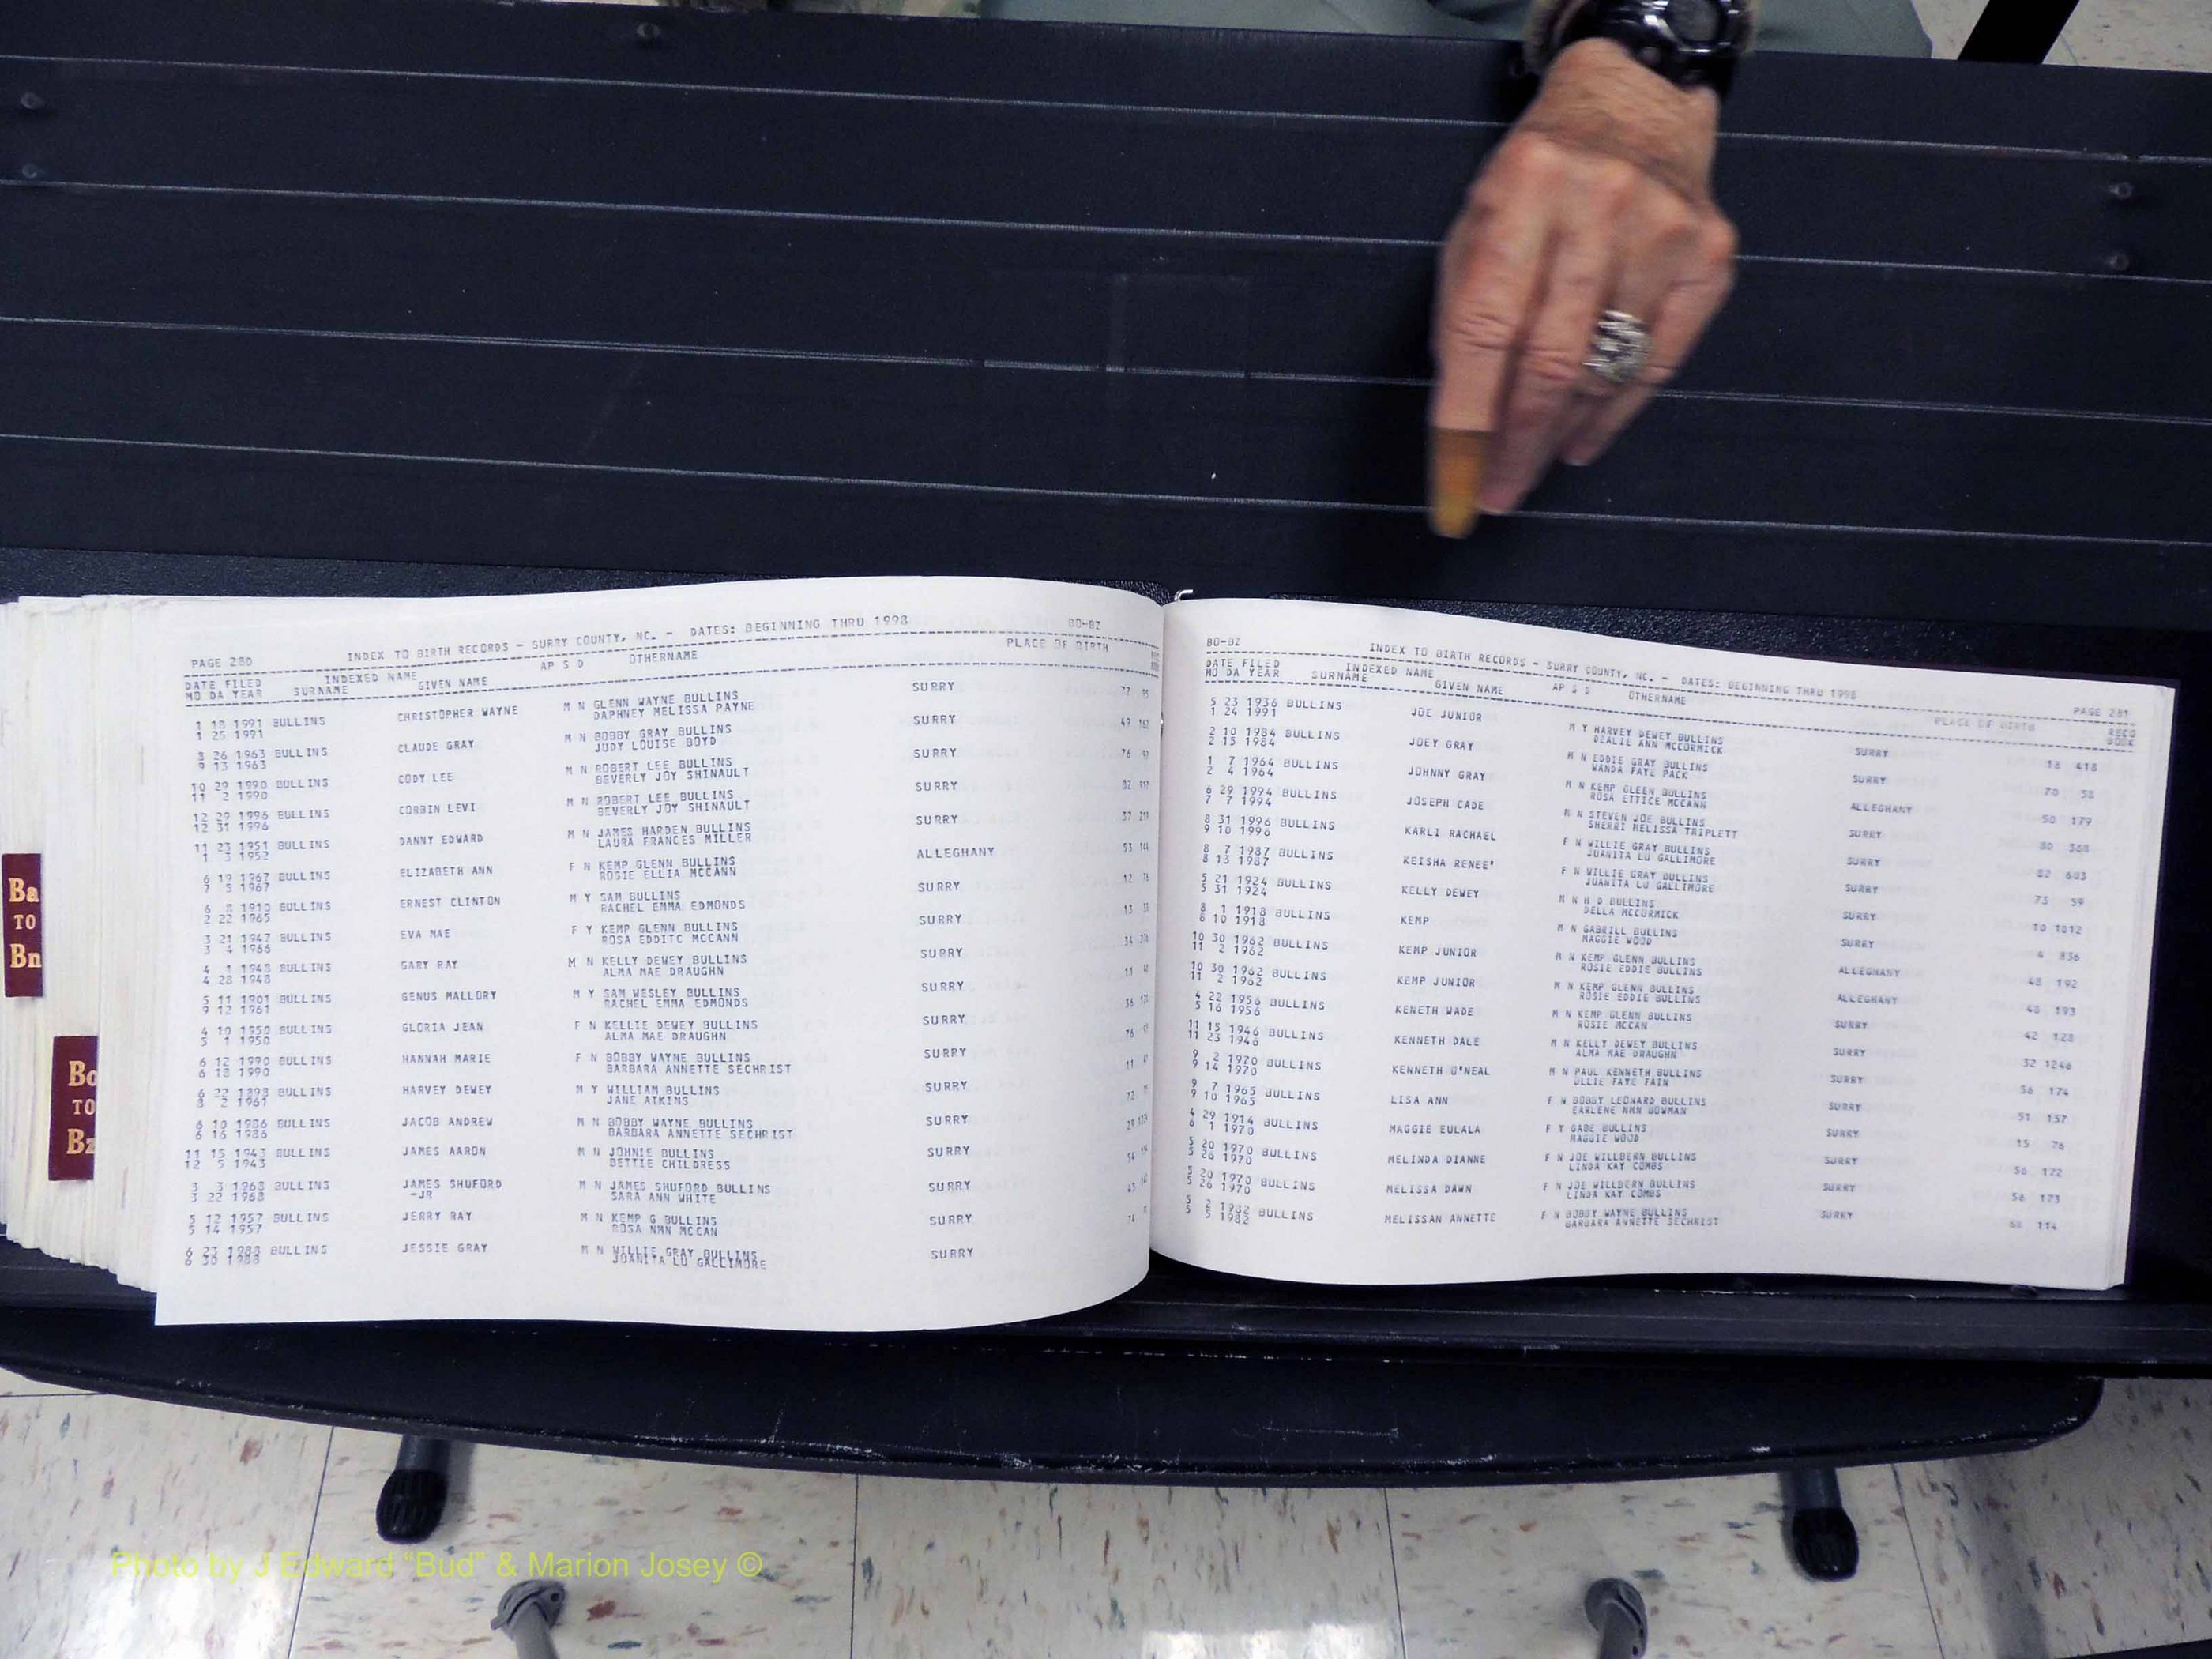 Ba
TO
Bn
Bo
TO
Bz
PAGE 280 INDEX TO BIRTH RECORDS - SURRY COUNTY, NC. - DATES: BEGINNING THRU 1998 BO-BZ
DATE FILED INDEXED NAME AP S D OTHERNAME PLACE OF BIRTH
MO DA YEAR SURNAME GIVEN NAME
1 18 1991 BULLINS CHRISTOPHER WAYNE M N GLENN WAYNE BULLINS SURRY 77
1 25 1991 DAPHNEY MELISSA PAYNE
8 26 1963 BULLINS CLAUDE GRAY M N BOBBY GRAY BULLINS SURRY 49
9 13 1963 JUDY LOUISE BOYD
10 29 1990 BULLINS CODY LEE M N ROBERT LEE BULLINS SURRY 76
11 2 1990 BEVERLY JOY SHINAULT
12 29 1996 BULLINS CORBIN LEVI M N ROBERT LEE BULLINS SURRY 82
12 31 1996 BEVERLY JOY SHINAULT
11 23 1951 BULLINS DANNY EDWARD M N JAMES HARDEN BULLINS SURRY 37
1 3 1952 LAURA FRANCES MILLER
6 19 1967 BULLINS ELIZABETH ANN F N KEMP GLENN BULLINS ALLEGHANY 53
7 5 1967 ROSIE ELLIA MCCANN
6 8 1910 BULLINS ERNEST CLINTON M Y SAM BULLINS SURRY 12
2 22 1965 RACHEL EMMA EDMONDS
3 21 1947 BULLINS EVA MAE F Y KEMP GLENN BULLINS SURRY 13
3 4 1966 ROSA EDDITC MCCANN
4 1 1948 BULLINS GARY RAY M N KELLY DEWEY BULLINS SURRY 34
4 28 1948 ALMA MAE DRAUGHN
5 11 1901 BULLINS GENUS MALLORY M Y SAM WESLEY BULLINS SURRY 11
9 12 1961 RACHEL EMMA EDMONDS
4 10 1950 BULLINS GLORIA JEAN F N KELLIE DEWEY BULLINS SURRY 36
5 1 1950 ALMA MAE DRAUGHN
6 12 1990 BULLINS HANNAH MARIE F N BOBBY WAYNE BULLINS SURRY 76
6 18 1990 BARBARA ANNETTE SECHRIST
6 22 1898 BULLINS HARVEY DEWEY M Y WILLIAM BULLINS SURRY 11
8 2 1961 JANE ATKINS
6 10 1986 BULLINS JACOB ANDREW M N BOBBY WAYNE BULLINS SURRY 72
6 16 1986 BARBARA ANNETTE SECHRIST
11 15 1943 BULLINS JAMES AARON M N JOHNIE BULLINS SURRY 29
12 5 1943 BETTIE CHILDRESS
3 3 1968 BULLINS JAMES SHUFORD M N JAMES SHUFORD BULLINS SURRY
3 22 1968 -JR SARA ANN WHITE
5 12 1957 BULLINS JERRY RAY M N KEMP G BULLINS SURRY
5 14 1957 ROSA NMN MCCAN
6 23 1988 BULLINS JESSIE GRAY M N WILLIE GRAY BULLINS SURRY
6 30 1988 JUANITA LU GALLIMORE
BO-BZ INDEX TO BIRTH RECORDS - SURRY COUNTY, NC. - DATES: BEGINNING THRU 1998 PAGE 281
DATE FILED INDEXED NAME AP S D OTHERNAME PLACE OF BIRTH RECD
MO DA YEAR SURNAME GIVEN NAME BOOK
5 23 1936 BULLINS JOE JUNIOR M Y HARVEY DEWEY BULLINS SURRY 18 418
1 24 1991 DEALIE ANN MCCORMICK
2 10 1984 BULLINS JOEY GRAY M N EDDIE GRAY BULLINS SURRY 70 58
2 15 1984 WANDA FAYE PACK
1 7 1964 BULLINS JOHNNY GRAY M N KEMP GLEEN BULLINS ALLEGHANY 50 179
2 4 1964 ROSA ETTICE MCCANN
6 29 1994 BULLINS JOSEPH CADE M N STEVEN JOE BULLINS SURRY 80 568
7 7 1994 SHERRI MELISSA TRIPLETT
8 31 1996 BULLINS KARLI RACHAEL F N WILLIE GRAY BULLINS SURRY 82 603
9 10 1996 JUANITA LU GALLIMORE
8 7 1987 BULLINS KEISHA RENEE' F N WILLIE GRAY BULLINS SURRY 73 59
8 13 1987 JUANITA LU GALLIMORE
5 21 1924 BULLINS KELLY DEWEY M N H D BULLINS SURRY 10 1012
5 31 1924 DELLA MCCORMICK
8 1 1918 BULLINS KEMP M N GABRILL BULLINS SURRY 4 836
8 10 1918 MAGGIE WOOD
10 30 1962 BULLINS KEMP JUNIOR M N KEMP GLENN BULLINS ALLEGHANY 48 192
11 2 1962 ROSIE EDDIE BULLINS
10 30 1962 BULLINS KEMP JUNIOR M N KEMP GLENN BULLINS ALLEGHANY 48 193
11 2 1962 ROSIE EDDIE BULLINS
4 22 1956 BULLINS KENETH WADE M N KEMP GLENN BULLINS SURRY 42 128
5 16 1956 ROSIE MCCAN
11 15 1946 BULLINS KENNETH DALE M N KELLY DEWEY BULLINS SURRY 32 1246
11 23 1946 ALMA MAE DRAUGHN
9 2 1970 BULLINS KENNETH O'NEAL M N PAUL KENNETH BULLINS SURRY 56 174
9 14 1970 OLLIE FAYE FAIN
9 7 1965 BULLINS LISA ANN F N BOBBY LEONARD BULLINS SURRY 51 157
9 10 1965 EARLENE NMN BOWMAN
4 29 1914 BULLINS MAGGIE EULALA F Y GABE BULLINS SURRY 15 76
6 1 1970 MAGGIE WOOD
5 20 1970 BULLINS MELINDA DIANNE F N JOE WILLBERN BULLINS SURRY 56 172
5 26 1970 LINDA KAY COMBS
5 20 1970 BULLINS MELISSA DAWN F N JOE WILLBERN BULLINS SURRY 56 173
5 26 1970 LINDA KAY COMBS
5 2 1982 BULLINS MELISSAN ANNETTE F N BOBBY WAYNE BULLINS SURRY 68 114
5 5 1982 BARBARA ANNETTE SECHRIST
Photo by J Edward "Bud" & Marion Josey ©